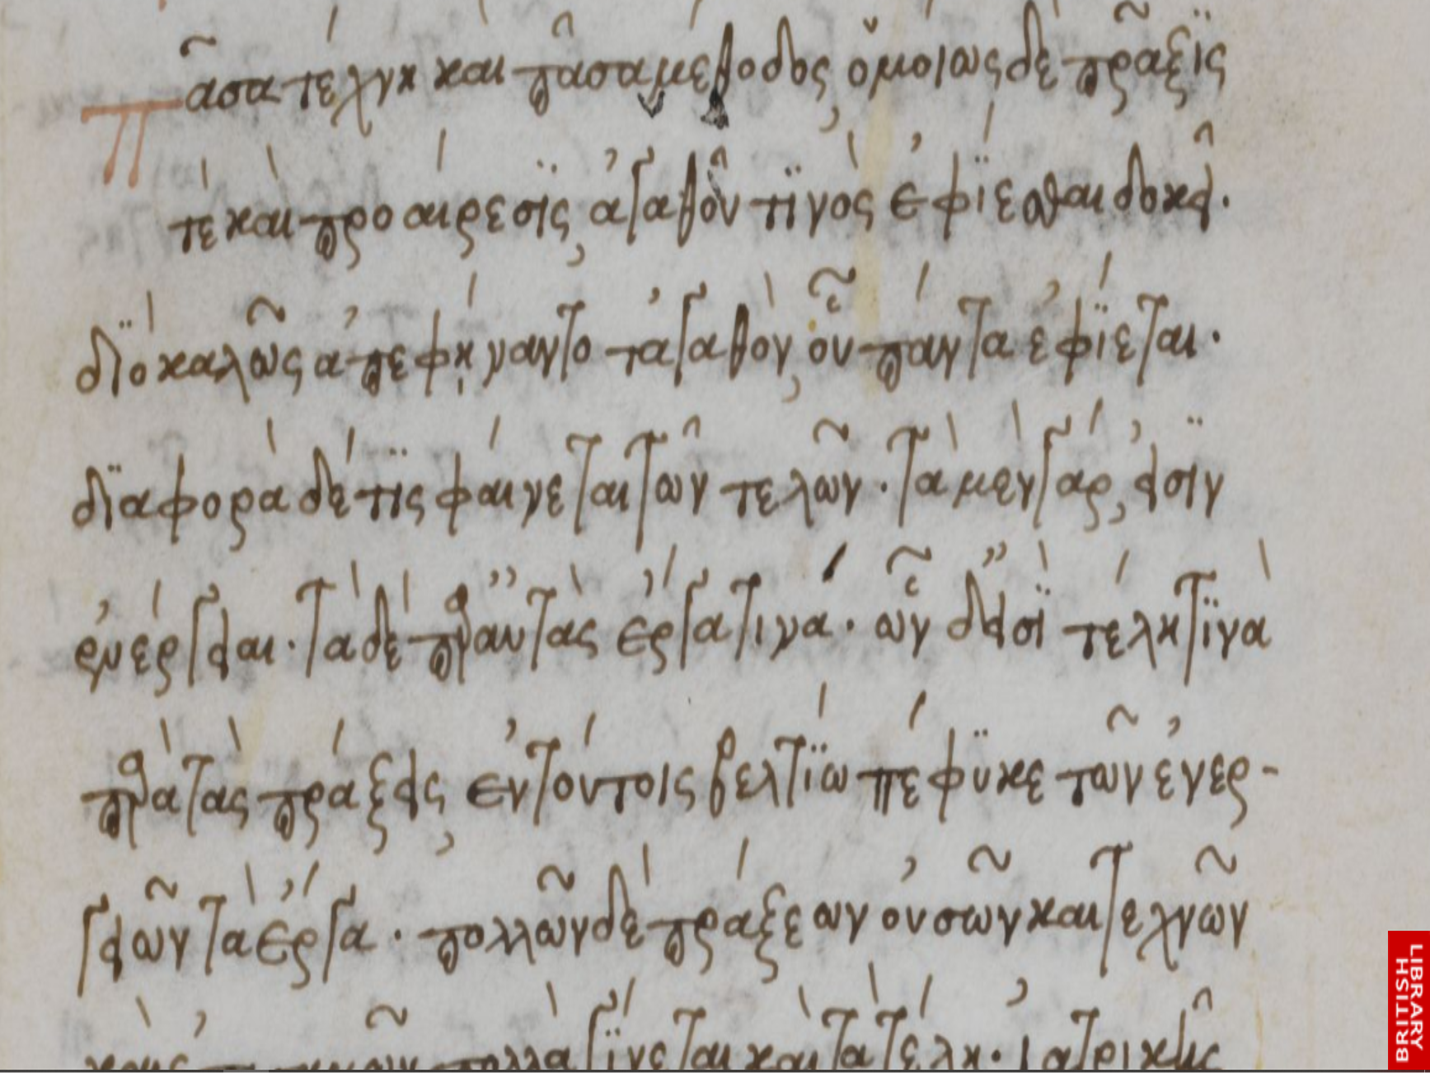 Πᾶσα τέχνη καὶ πᾶσα μέθοδος, ὁμοίως δὲ πρᾶξίς
τε καὶ προαίρεσις, ἀγαθοῦ τινὸς ἐφίεσθαι δοκεῖ.
διὸ καλῶς ἀπεφήναντο τἀγαθὸν, οὗ πάντα ἐφίεται.
διαφορὰ δέ τις φαίνεται τῶν τελῶν. τὰ μὲν γάρ, εἰσιν
ἐνέργειαι. τὰ δὲ παρ' αὐτὰς ἔργα τινά. ὧν δ' εἰσὶ τέλη τινὰ
παρὰ τὰς πράξεις, ἐν τούτοις βελτίω πέφυκε τῶν ἐνερ-
γειῶν τὰ ἔργα. πολλῶν δὲ πράξεων οὐσῶν καὶ τεχνῶν
πολλὰ γίνεται καὶ τὰ τέλη. ἰατρικῆς
BRITISH LIBRARY